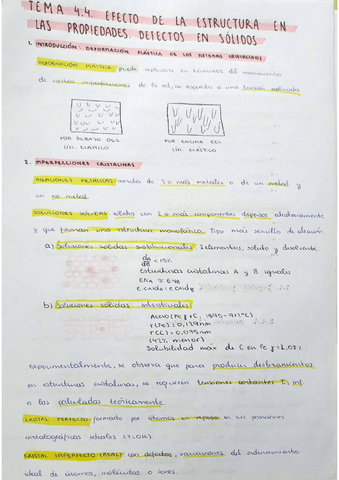 TEMA 4.4. EFECTO DE LA ESTRUCTURA EN
LAS PROPIEDADES. DEFECTOS EN SÓLIDOS
1. INTRODUCCIÓN: DEFORMACIÓN PLÁSTICA DE LOS SISTEMAS CRISTALINOS
DEFORMACIÓN PLÁSTICA: puede explicarse en términos del movimiento
de de la red, en respuesta a una tensión aplicada
POR DEBAJO DEL
LÍM. ELÁSTICO
POR ENCIMA DEL
LÍM. ELÁSTICO
2. IMPERFECCIONES CRISTALINAS
ALEACIONES METÁLICAS: mezcla de 2 o más metales o de un metal y
un no metal.
SOLUCIONES SÓLIDAS: sólidos con 2 o más componentes dispersos aleatoriamente
y que forman una estructura monofásica. Tipo más sencillo de aleación
a) Soluciones sólidas sustitucionales: 2 elementos, soluto y disolvente.
< 15%
Estructuras cristalinas A y B iguales
ENA ≈ ENB
e.cnida ≈ e.cnidB
b) Soluciones sólidas intersticiales
Acero (Fe γ + C, 1395-912ºC)
r(Fe) = 0,129nm
r(C) = 0,075nm
(42% menor)
Solubilidad máx de C en Fe γ = 2,08%
Experimentalmente, se observa que para producir deslizamientos
en estructuras cristalinas, se requieren tensiones cortantes inf.
a las calculadas teóricamente.
CRISTAL PERFECTO: formado por átomos en reposo en sus posiciones
cristalográficas ideales (T=0K).
CRISTAL IMPERFECTO (REAL): con defectos, variaciones del ordenamiento
ideal de átomos, moléculas o iones.